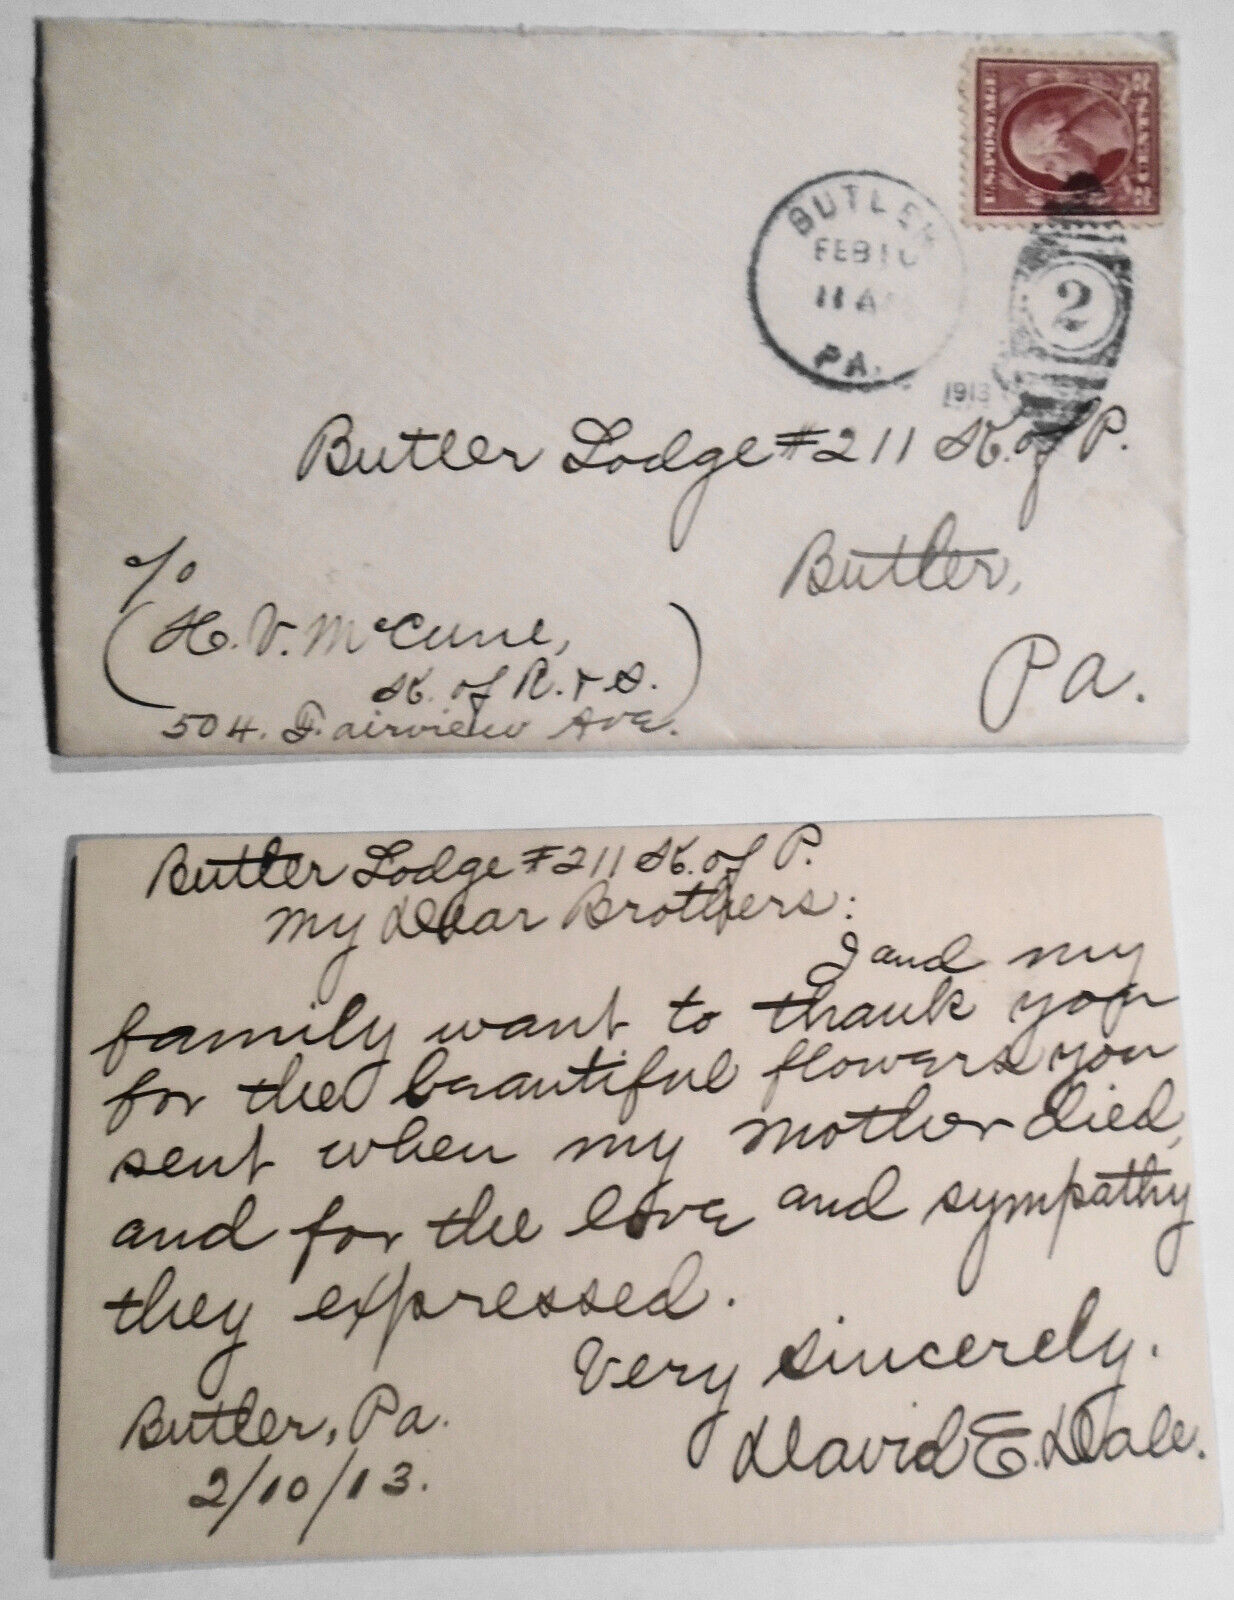 U.S. POSTAGE
2 CENTS 2
BUTLER
FEB 10
11 A
PA.
1913
2
Butler Lodge #211 K. of P.
Butler,
Pa.
c/o
(H. V. McCune,
K. of R. & S.)
504. Fairview Ave.
Butler Lodge #211 K. of P.
My Dear Brothers:
I and my
family want to thank you
for the beautiful flowers you
sent when my mother died,
and for the love and sympathy
they expressed.
Very sincerely.
David E. Dale.
Butler, Pa.
2/10/13.